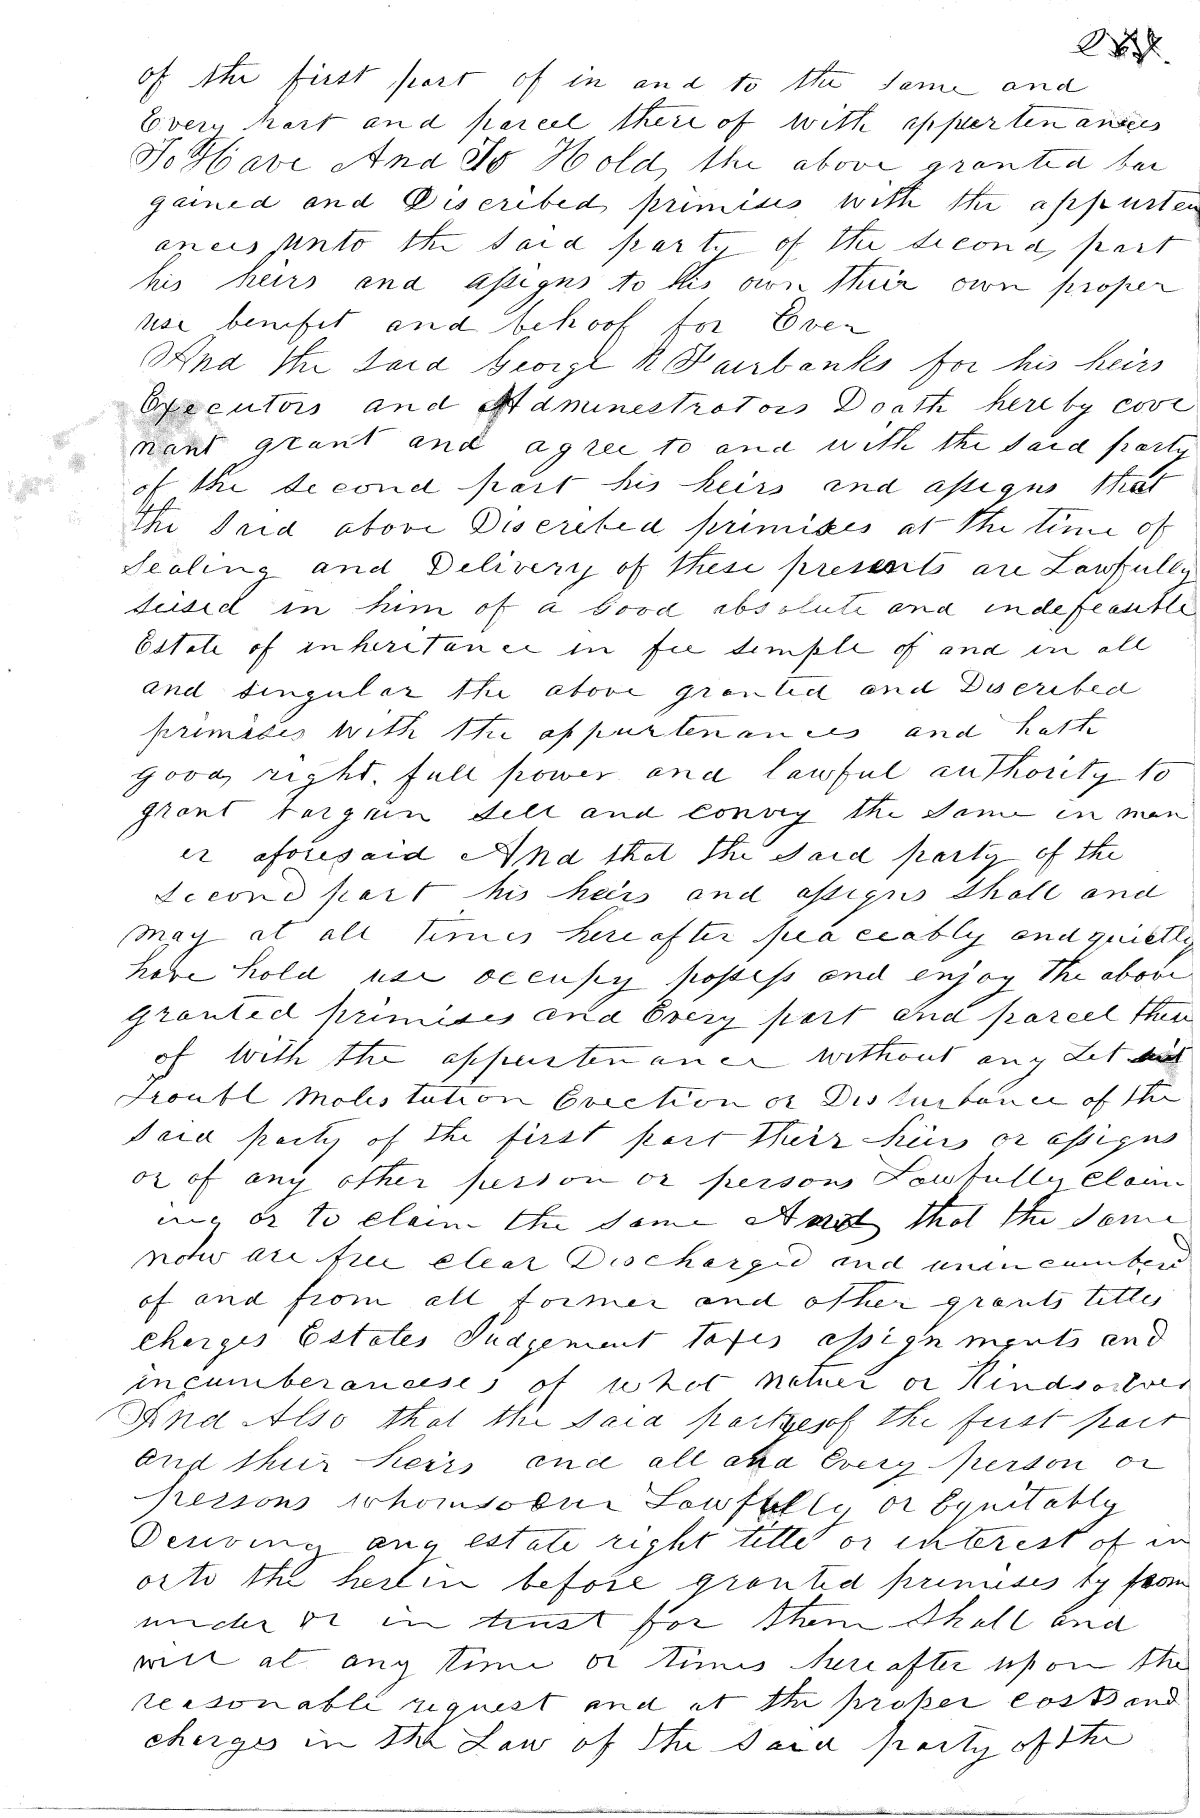 of the first part of in and to the same and
Every part and parcel there of with appertenances
To Have And To Hold, the above granted bar
gained and Discribed primises with the appurten
ances, unto the said party of the second part
his heirs and assigns to his own their own proper
use benifit and behoof for Ever
And the said George R Fairbanks for his heirs
Executors and Adminestrators Doath hereby cove
nant grant and agree to and with the said party
of the second part his heirs and assigns that
the said above Discribed primises at the time of
Sealing and Delivery of these presents are Lawfully
seised in him of a Good absolute and indefeasible
Estate of inheritance in fee simple of and in all
and singular the above granted and Discribed
primises with the appurtenances and hath
good, right, full power and lawful authority to
grant bargain sell and convey the same in man
er aforesaid And that the said party of the
second part his heirs and assigns shall and
may at all times hereafter peaceably and quietly
have hold use occupy possess and enjoy the above
granted primises and Every part and parcel there
of with the appurtenance without any Let
Troubl Molestation Eviction or Disturbance of the
said party of the first part their heirs or assigns
or of any other person or persons Lawfully claim
ing or to claim the same And that the same
now are free clear Discharged and unincumberd
of and from all former and other grants titles
charges Estates Judgement taxes assignments and
incumberanceses of what natuer or Kindsoever
And Also that the said partyes of the first part
and their heirs and all and Every person or
persons whomsoever Lawfully or Equitably
Deriving any estate right title or interest of in
or to the herein before granted premises by from
under or in trust for them shall and
will at any time or times hereafter upon the
reasonable request and at the proper costs and
charges in the Law of the said party of the